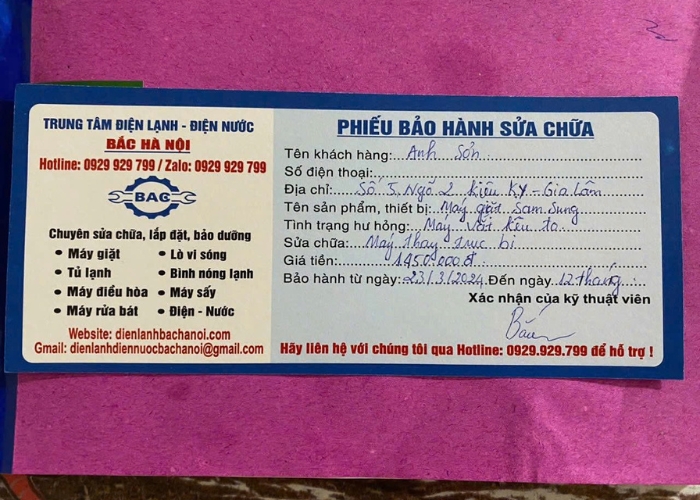 TRUNG TÂM ĐIỆN LẠNH - ĐIỆN NƯỚC
BẮC HÀ NỘI
Hotline: 0929 929 799 / Zalo: 0929 929 799
BAC
Chuyên sửa chữa, lắp đặt, bảo dưỡng
• Máy giặt • Lò vi sóng
• Tủ lạnh • Bình nóng lạnh
• Máy điều hòa • Máy sấy
• Máy rửa bát • Điện - Nước
Website: dienlanhbachanoi.com
Gmail: dienlanhdiennuocbachanoi@gmail.com
PHIẾU BẢO HÀNH SỬA CHỮA
Tên khách hàng: Anh Sơn
Số điện thoại:
Địa chỉ: Số 5 Ngõ 2 Kiêu Kỵ - Gia Lâm
Tên sản phẩm, thiết bị: Máy giặt Sam Sung
Tình trạng hư hỏng: Máy vắt kêu to
Sửa chữa: Máy thay trục bi
Giá tiền: 1450.000đ
Bảo hành từ ngày: 23/3/2024 Đến ngày 12 tháng
Xác nhận của kỹ thuật viên
Hãy liên hệ với chúng tôi qua Hotline: 0929.929.799 để hỗ trợ !